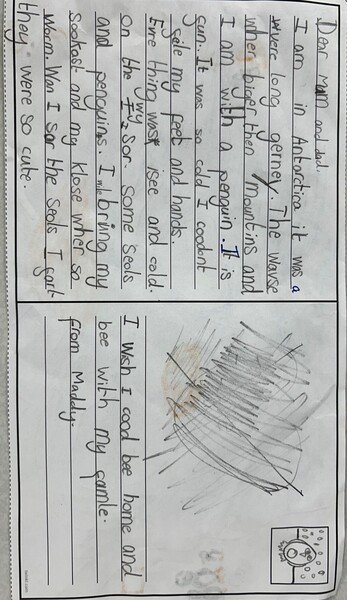 Dear mum and dad.
I am in Antarctica it was a
were long gerney. The wavse
wher biger then mountins and
I am with a penguin. It is
cam. It was so cold I coodnt
fele my feet and hands.
Evre thing was isee and cold.
on the I sor some seals
and penguins. I briing my
sookast and my klose wher so
worm. Wan I sor the seals I fort
they were so cute.
I wish I cood bee home and
bee with my famle.
from Maddy.
twinkl.com